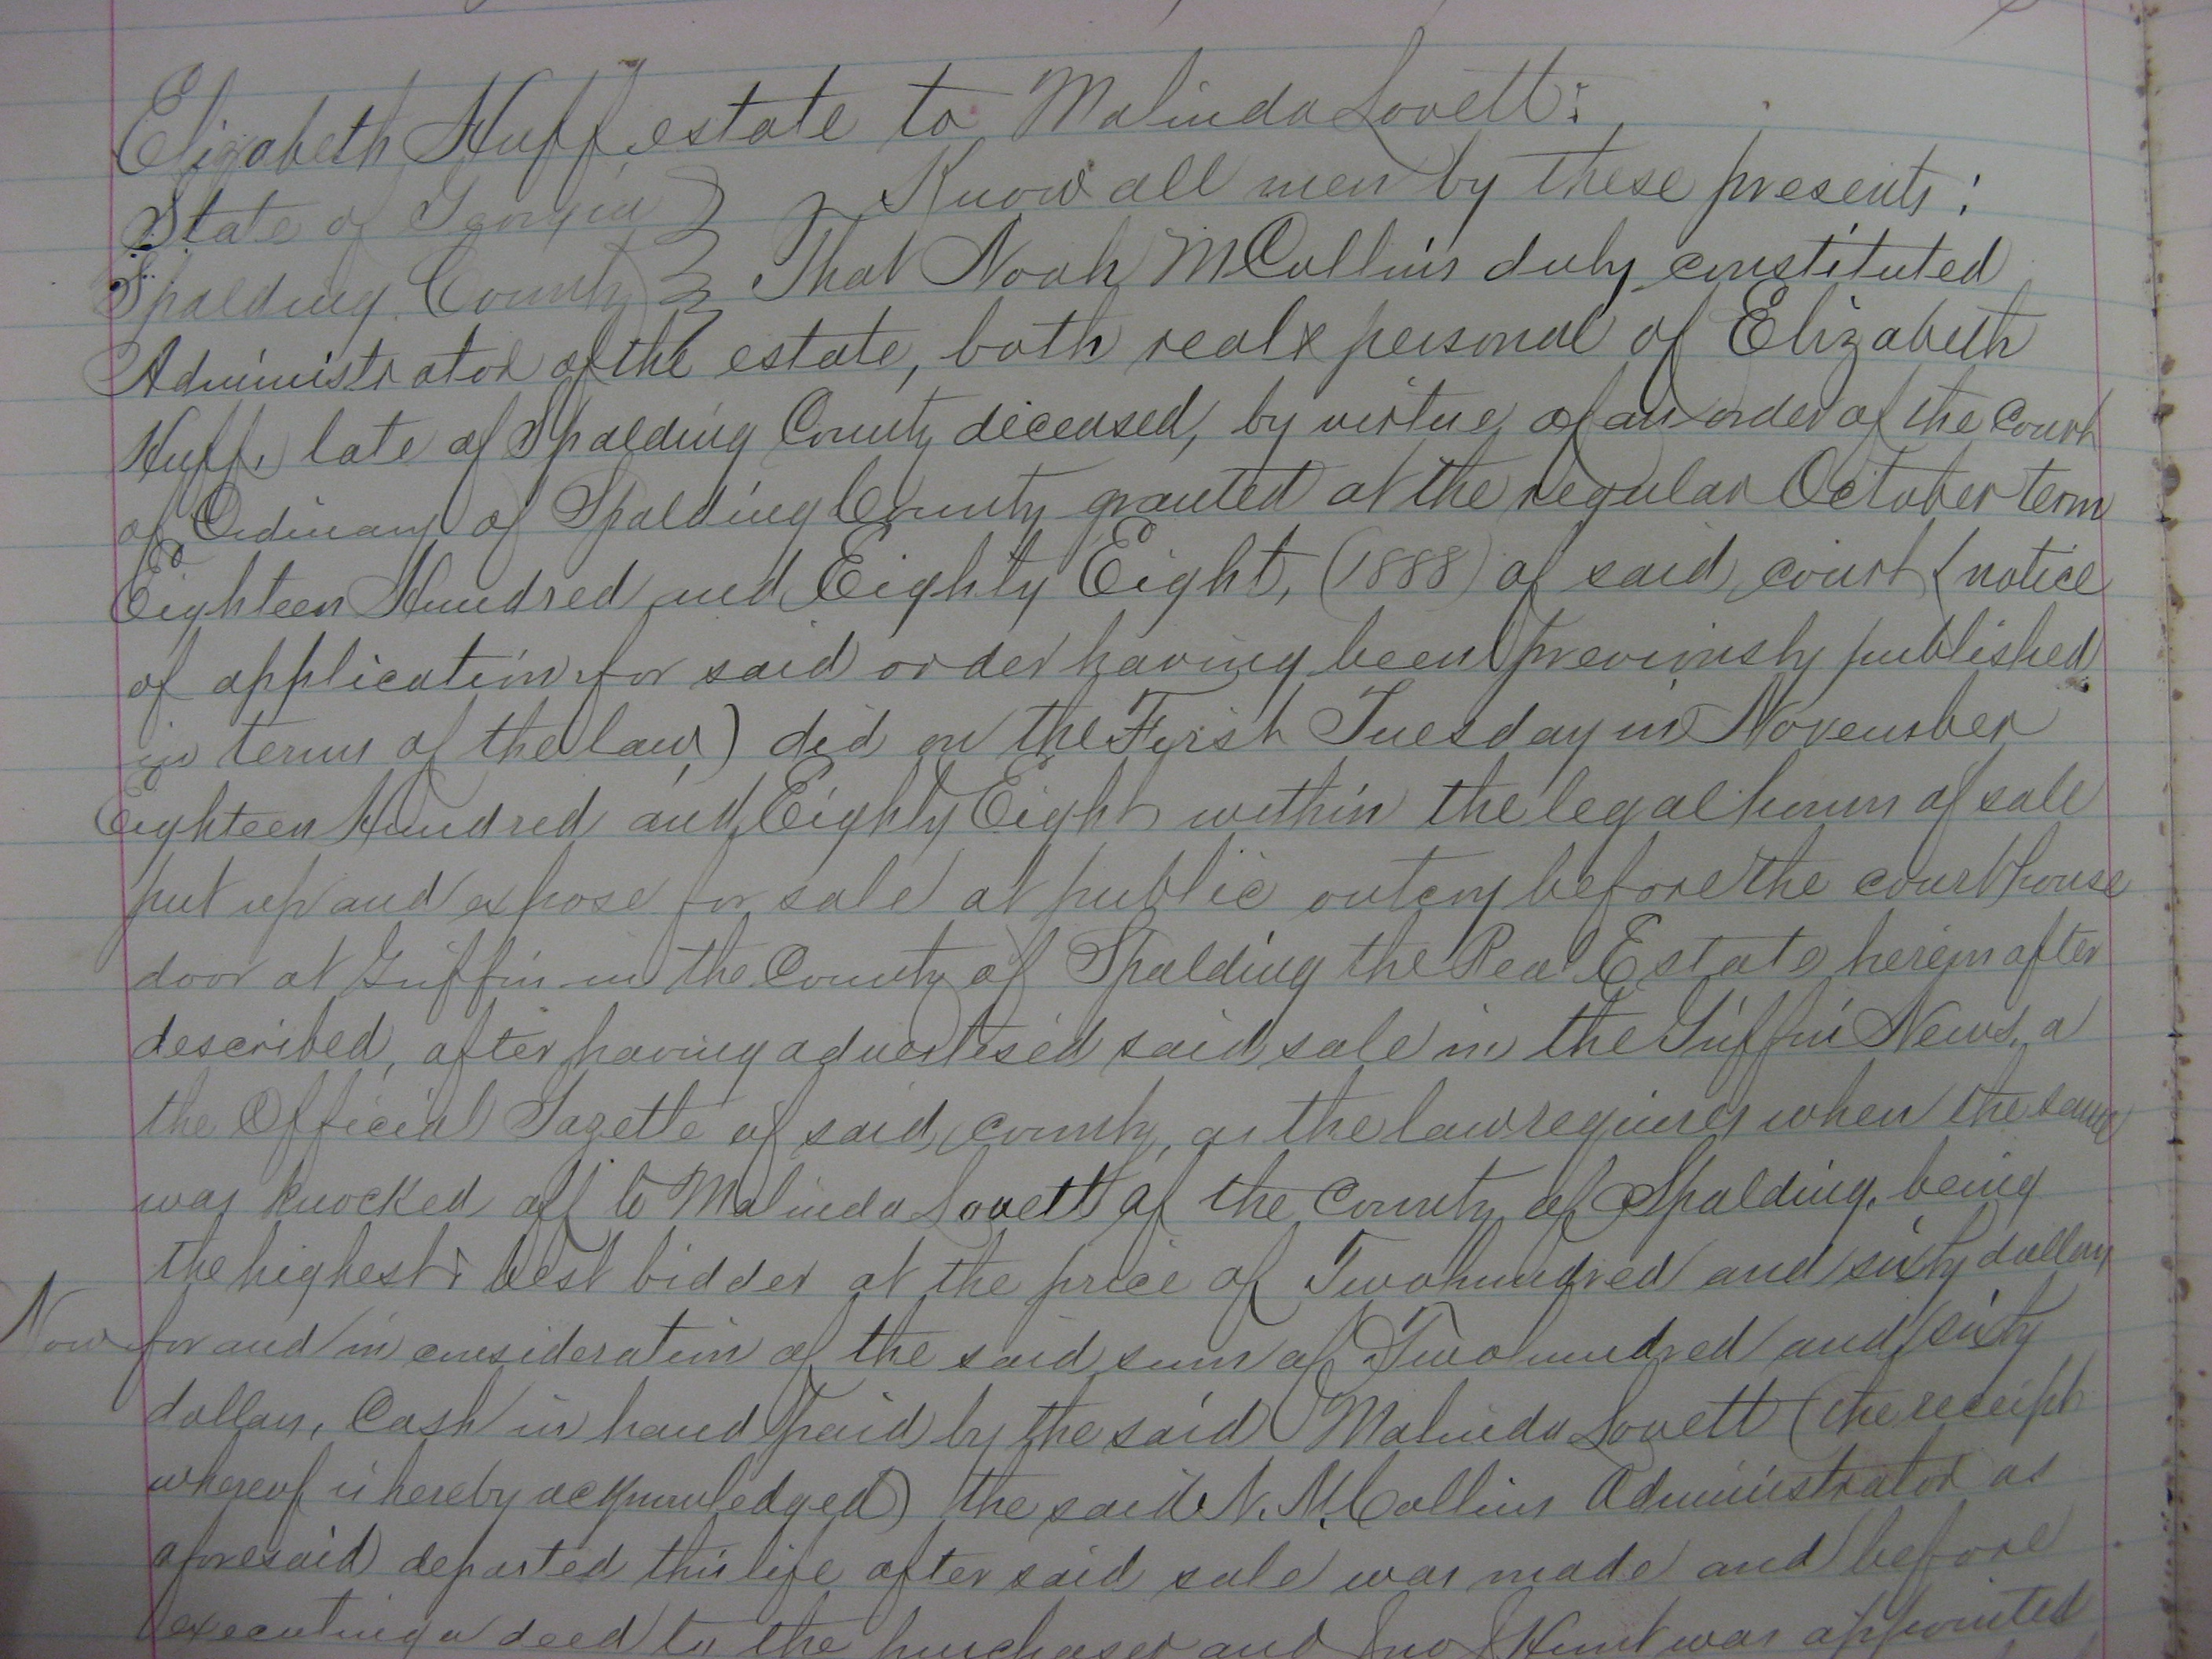 Elizabeth Huff estate to Malinda Lovett:
State of Georgia } Know all men by these presents:
Spalding County } That Noah M Collins duly constituted
Administrator of the estate, both real & personal of Elizabeth
Huff, late of Spalding County deceased, by virtue of an order of the Court
of Ordinary of Spalding County granted at the regular October term
Eighteen Hundred and Eighty Eight, (1888) of said court (notice
of application for said order having been previously published
in terms of the law) did on the First Tuesday in November
Eighteen Hundred and Eighty Eight within the legal hours of sale
put up and expose for sale at public outcry before the court house
door at Griffin in the County of Spalding the Real Estate hereinafter
described, after having advertised said sale in the Griffin News, a
the Official Gazette of said county, as the law requires when the same
was knocked off to Malinda Lovett of the County of Spalding, being
the highest & best bidder at the price of Two hundred and sixty dollars
Now for and in consideration of the said sum of Two hundred and sixty
dollars, Cash in hand paid by the said Malinda Lovett (the receipt
whereof is hereby acknowledged) the said N. M. Collins Administrator as
aforesaid departed this life after said sale was made and before
executing a deed to the purchaser and Jno J Hunt was appointed